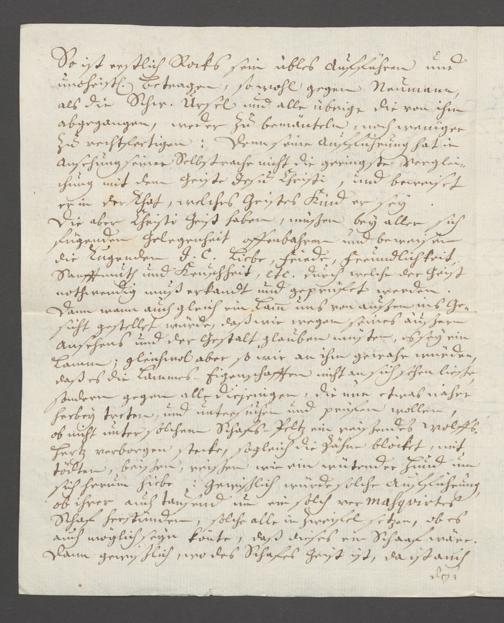 So ist erstlich Rocks sein übles Aufführen und
unchristl. Betragen, sowohl gegen Neumann,
als die Schw. Ursel und alle übrige die von ihm
abgegangen, weder zu bemänteln, noch weniger
zu rechtfertigen: Denn seine Aufführung hat in
Ansehung seiner Selbstrache nicht die geringste Verglei-
chung mit dem Geiste Jesu Christi, und beweiset
er in der That, welches Geistes Kind er sey.
Die aber Christi Geist haben, müssen bey aller sich
fügenden Gelegenheit offenbahren und beweisen
die Tugenden J. C. Liebe, Friede, Freundlichkeit,
Sanfftmuth und Keuschheit, etc. durch welche der Geist
nothwendig muß erkandt und geprüfet werden.
Dann wann auch gleich ein Lam uns von aussen ins Ge-
sicht gestellet würde, daß wir wegen seines äussern
Ansehens und der Gestalt glauben müsten, es sey ein
Lamm; gleichwol aber so wir an ihm gewahr würden,
daß es die Lammes Eigenschafften nicht an sich sehen liesse,
sondern gegen alle diejenigen, die nur etwas näher
herbey treten, und untersuchen und prüfen wollen,
ob nicht unter solchem Schafs-Peltz ein reissendes Wolffs
Hertz verborgen stecke, sogleich die Zähne blöcket, mit
beissen, reissen wie ein wütender Hund um
sich herum hiebe: gewißlich würde solche Aufführung,
ob ihrer auch tausend um ein solch vermasquirtes
Schaf herstunden, solche alle in Zweifel setzen, ob es
auch möglich seyn könte, daß dieses ein Schaaf wäre.
Dann gewißlich, wo des Schafes Geist ist, da ist auch